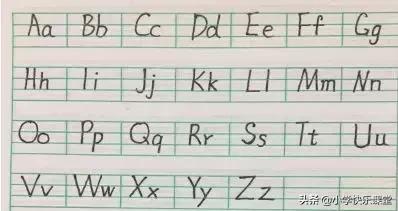 Aa Bb Cc Dd Ee Ff Gg
Hh Ii Jj Kk Ll Mm Nn
Oo Pp Qq Rr Ss Tt Uu
Vv Ww Xx Yy Zz
头条 @小学快乐课堂